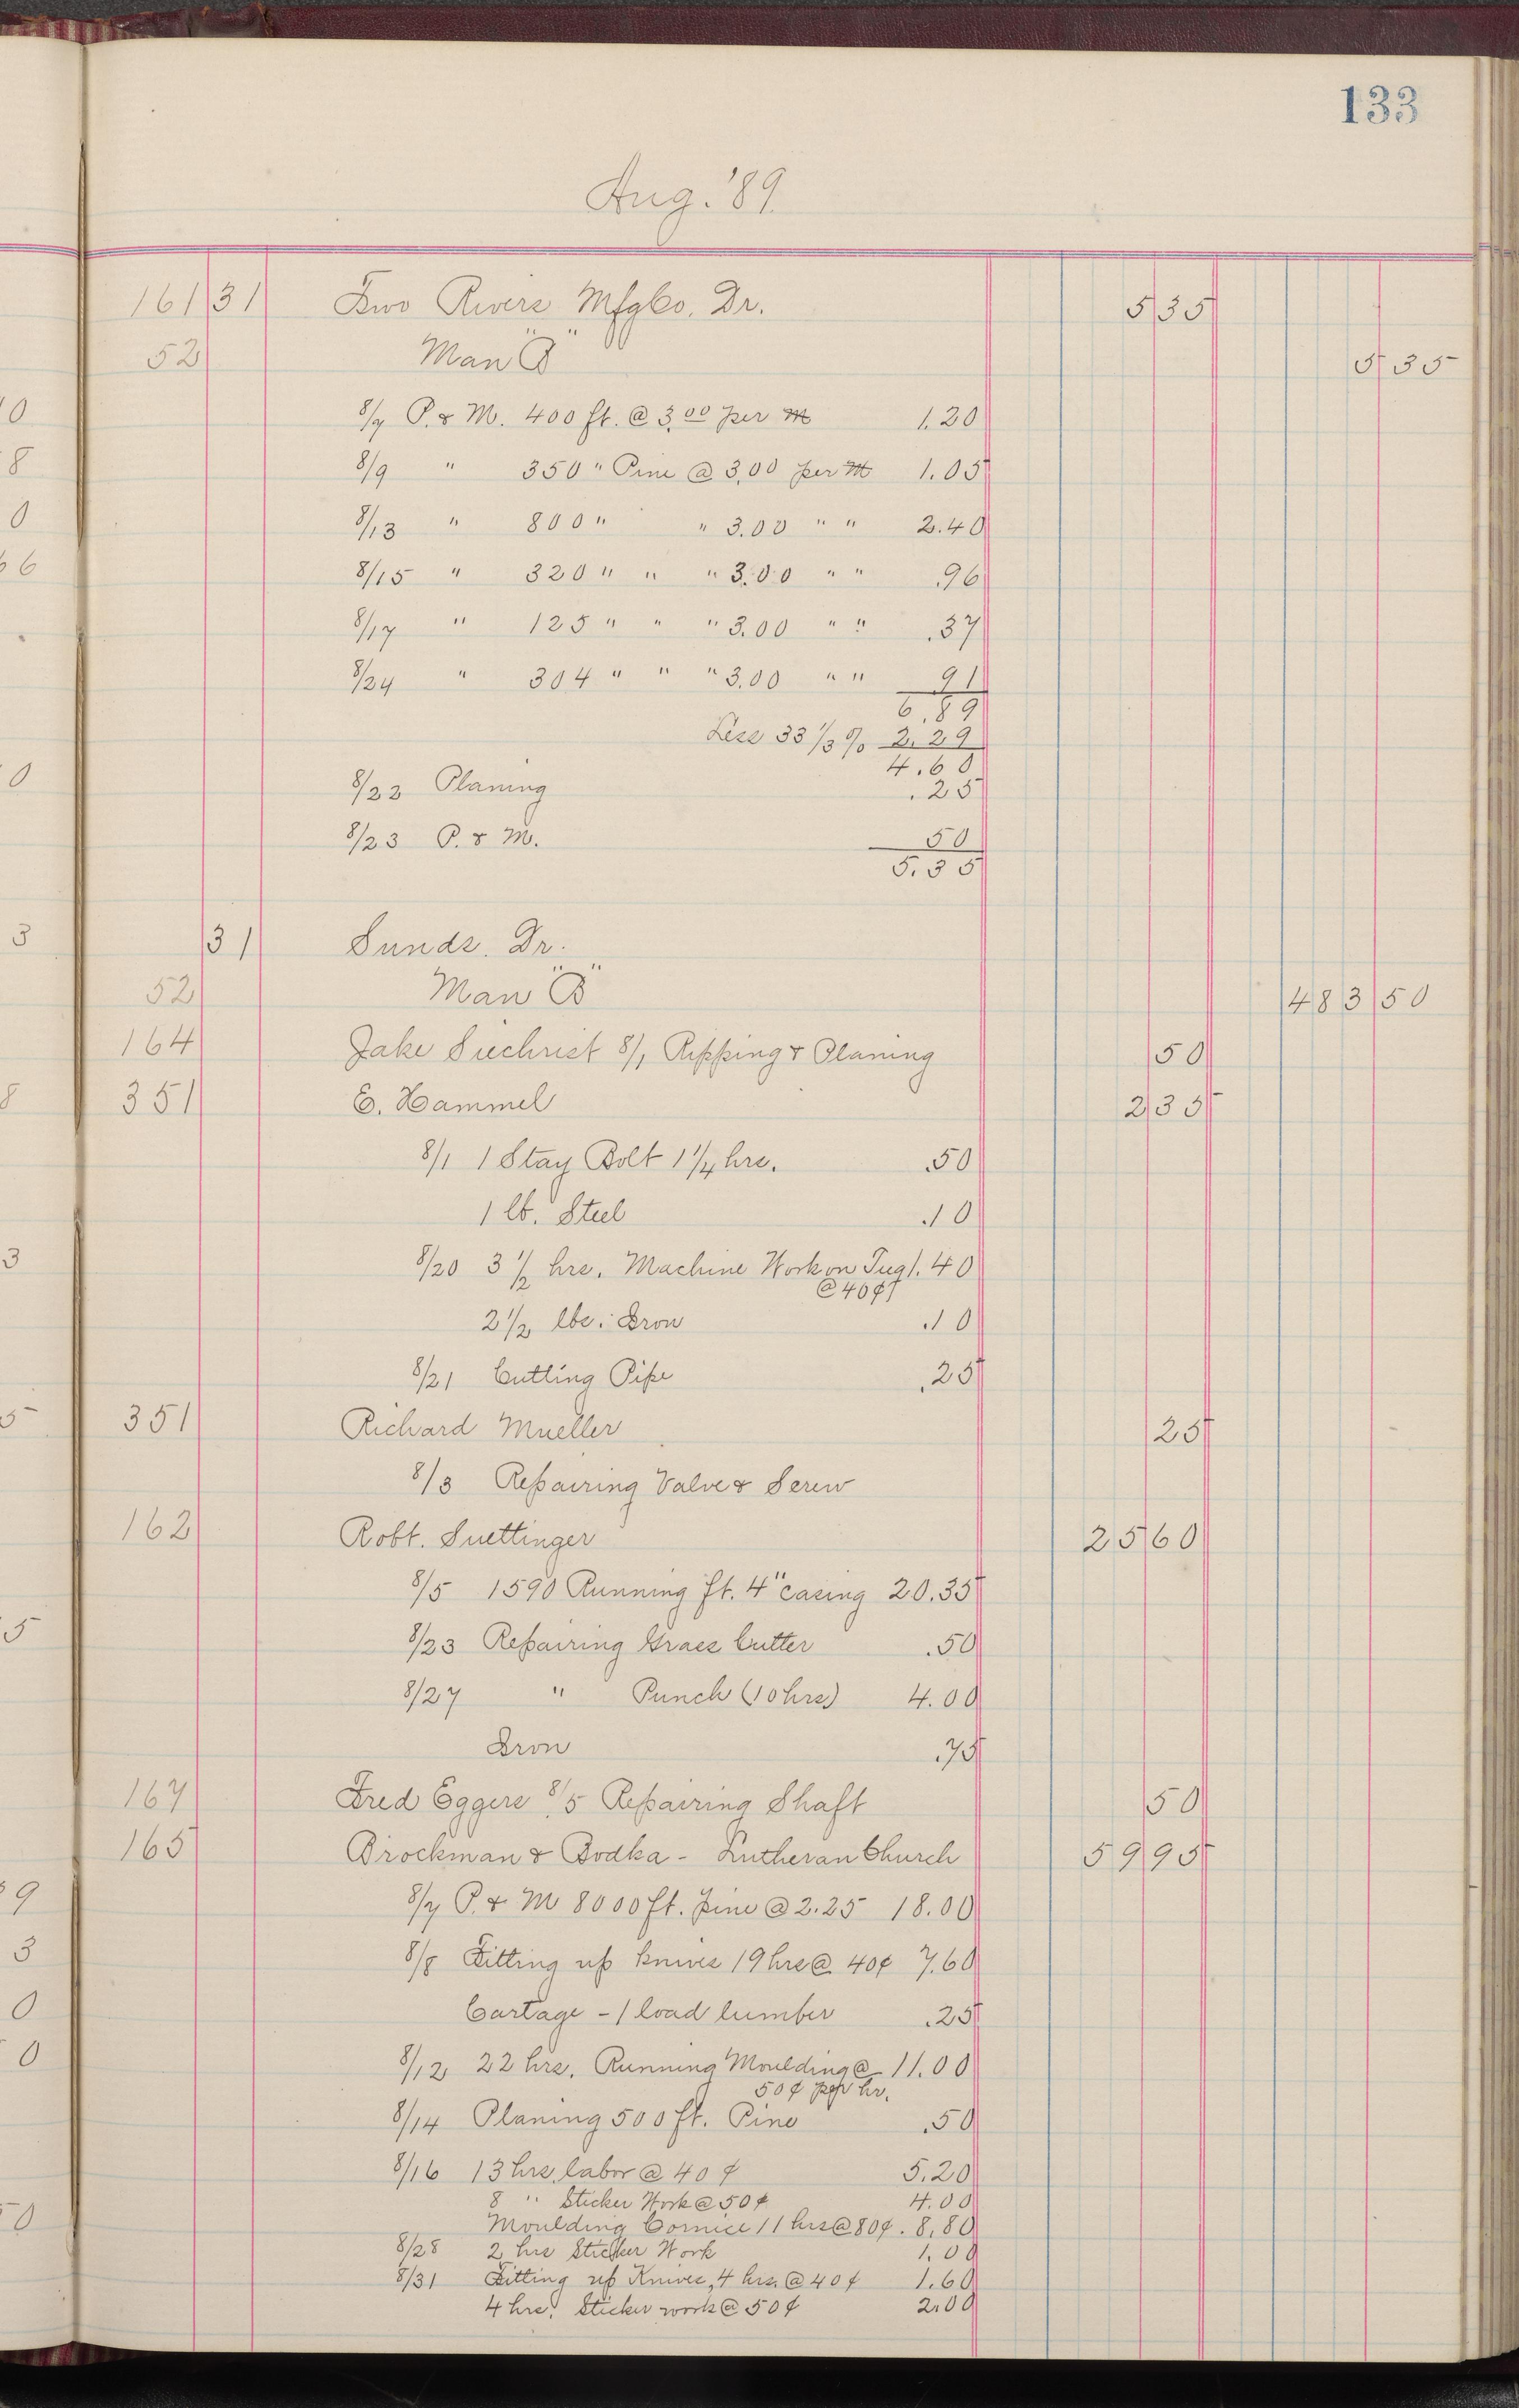 133
Aug. '89.
161 31 Two Rivers Mfg Co. Dr. 5 35
52 Man "B" 5 35
8/7 P. & M. 400 ft. @ 3.00 per M 1.20
8/9 " 350 " Pine @ 3.00 per M 1.05
8/13 " 800 " " 3.00 " " 2.40
8/15 " 320 " " " 3.00 " " .96
8/17 " 125 " " " 3.00 " " .37
8/24 " 304 " " " 3.00 " " 91
6.89
Less 33 1/3 % 2.29
4.60
8/22 Planing .25
8/23 P. & M. 50
5.35
31 Sunds. Dr.
52 Man "B" 483 50
164 Jake Siechrist 8/1 Ripping & Planing 50
351 E. Hammel 2 35
8/1 1 Stay Bolt 1 1/4 hrs. .50
1 lb. Steel .10
8/20 3 1/2 hrs. Machine Work on Tug 1.40
@ 40¢
2 1/2 lbs. Iron .10
8/21 Cutting Pipe .25
351 Richard Mueller 25
8/3 Repairing Valve & Screw
162 Robt. Suettinger 25 60
8/5 1590 Running ft. 4" casing 20.35
8/23 Repairing Grass Cutter .50
8/27 " Punch (10 hrs) 4.00
Iron .75
167 Fred Eggers 8/5 Repairing Shaft 50
165 Brockman & Bodka - Lutheran Church 59 95
8/7 P. & M 8000 ft. Pine @ 2.25 18.00
8/8 Fitting up knives 19 hrs @ 40¢ 7.60
Cartage - 1 load lumber .25
8/12 22 hrs. Running Moulding @ 11.00
50¢ per hr.
8/14 Planing 500 ft. Pine .50
8/16 13 hrs. labor @ 40¢ 5.20
8 " Sticker Work @ 50¢ 4.00
Moulding Cornice 11 hrs @ 80¢. 8.80
8/28 2 hrs Sticker Work 1.00
8/31 Fitting up Knives, 4 hrs. @ 40¢ 1.60
4 hrs. Sticker work @ 50¢ 2.00